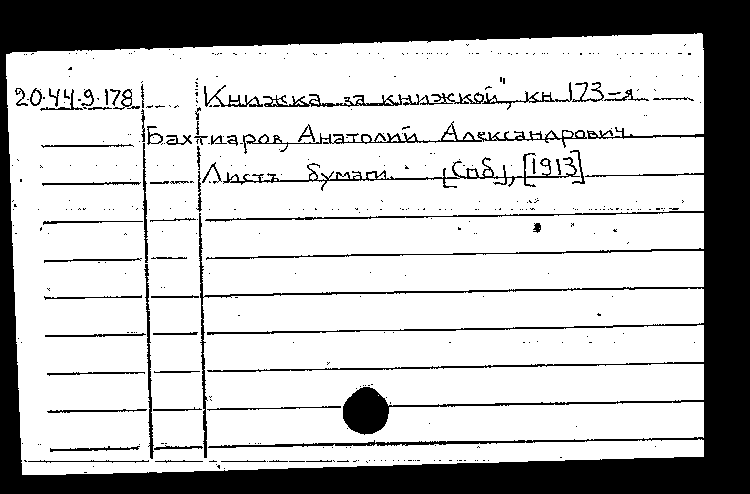 20.44.9.178 Книжка за книжкой", кн. 173-я
Бахтиаров, Анатолий Александрович.
Листъ бумаги. [Спб.], [1913]